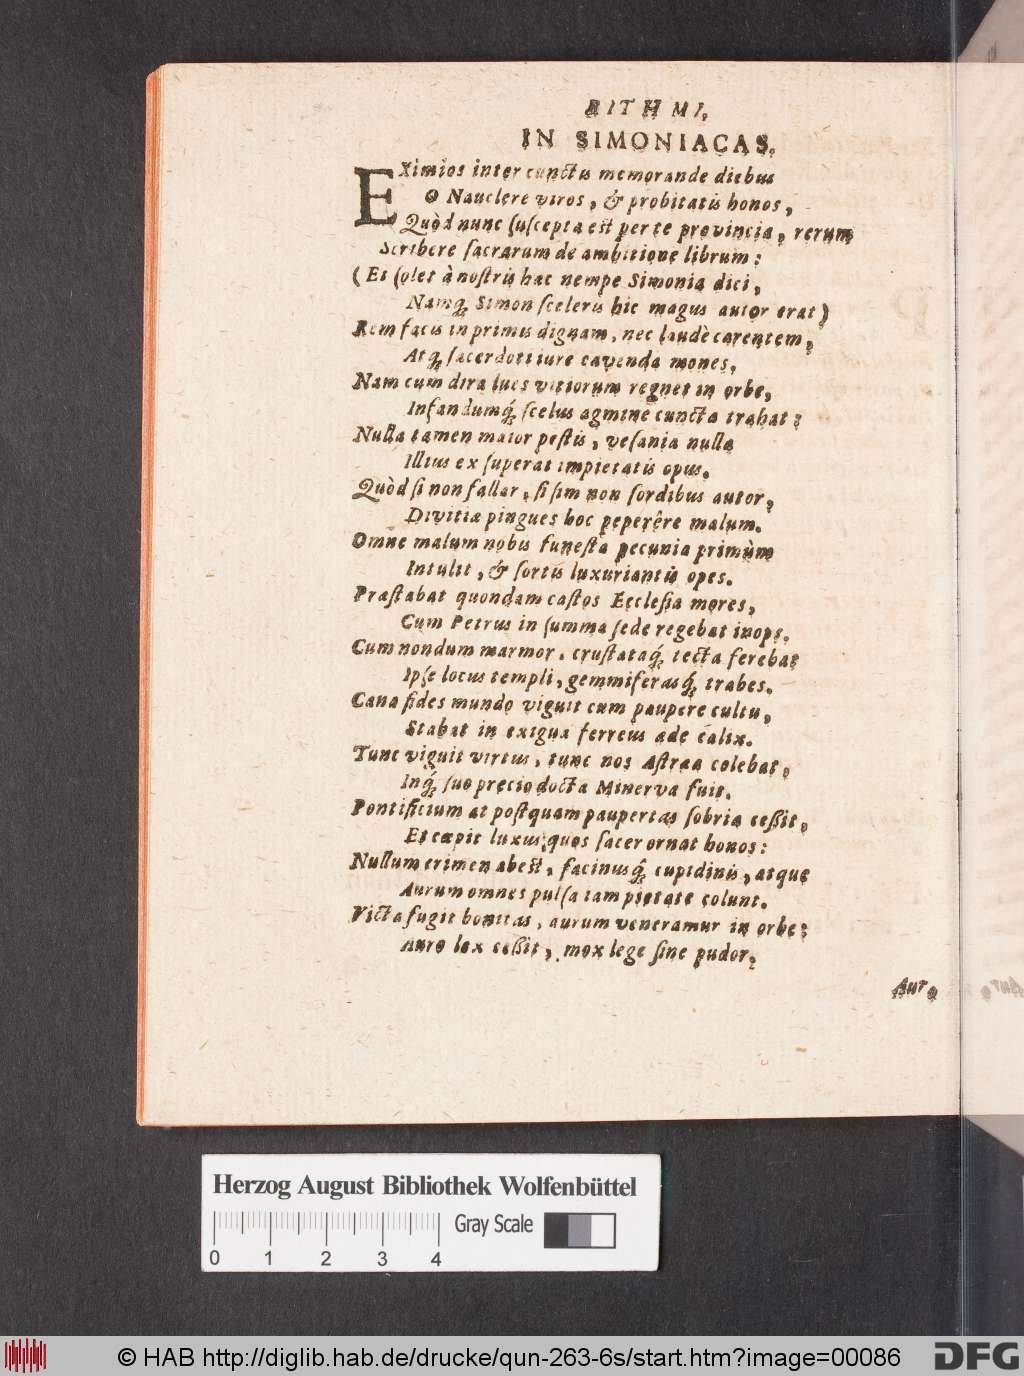 RITHMI.
IN SIMONIACAS.
EXimios inter cunctis memorande diebus
O Nauclere viros, & probitatis honos,
Quòd nunc ſuſcepta est per te provincia, rerum
Scribere ſacrarum de ambitione librum:
(Et ſolet à nostris hæc nempe Simonia dici,
Namq́; Simon ſceleris hic magus autor erat)
Rem facis in primis dignam, nec laudè carentem,
Atq́; ſacerdoti iure cavenda mones,
Nam cum dira lues vitiorum regnet in orbe,
Infandumq́; ſcelus agmine cuncta trahat:
Nulla tamen maior peſtis, veſania nulla
Illius exſuperat impietatis opus.
Quòd ſi non fallar, ſi ſim non ſordibus autor,
Divitiæ pingues hoc peperêre malum.
Omne malum nobis funeſta pecunia primùm
Intulit, & ſortis luxuriantis opes.
Præſtabat quondam caſtos Eccleſia mores,
Cum Petrus in ſumma ſede regebat inops.
Cum nondum marmor, cruſtataq́; tecta ferebat
Ipſe locus templi, gemmiferasq́; trabes.
Cana fides mundo viguit cum paupere cultu,
Stabat in exigua ferreus æde calix.
Tunc viguit virtus, tunc nos Aſtræa colebat,
Inq́; ſuo precio docta Minerva fuit.
Pontificium at poſtquam paupertas ſobria ceßit,
Et cœpit luxus, quos ſacer ornat honos:
Nullum crimen abest, facinusq́; cupidinis, atque
Aurum omnes pulſa iam pietate colunt.
Victa fugit bonitas, aurum veneramur in orbe:
Auro lex ceßit, mox lege ſine pudor,
Auro
Herzog August Bibliothek Wolfenbüttel
Gray Scale
0 1 2 3 4
© HAB http://diglib.hab.de/drucke/qun-263-6s/start.htm?image=00086
DFG